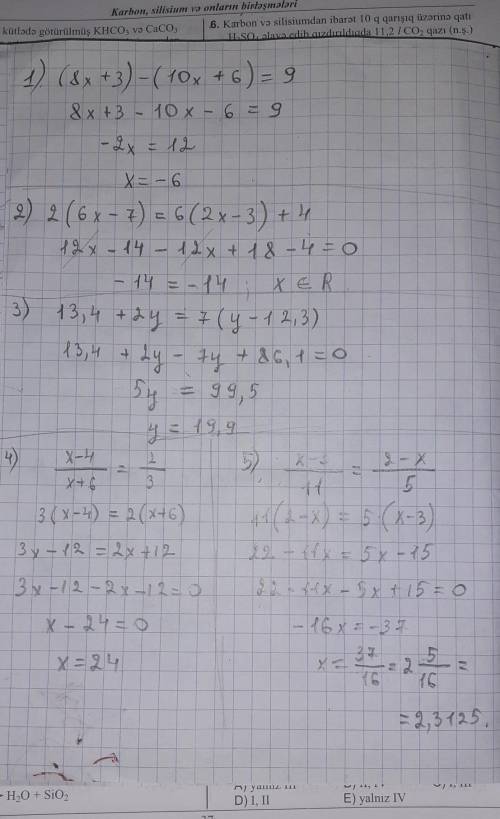 Karbon, silisium və onların birləşmələri
kütlədə götürülmüş KHCO₃ və CaCO₃
6. Karbon və silisiumdan ibarət 10 q qarışıq üzərinə qatı
H₂SO₄ əlavə edib qızdırıldıqda 11,2 l CO₂ qazı (n.ş.)
1) (8x+3)-(10x+6)=9
8x+3-10x-6=9
-2x=12
x=-6
2) 2(6x-7)=6(2x-3)+4
12x-14-12x+18-4=0
-14=-14; x∈R
3) 13,4+2y=7(y-12,3)
13,4+2y-7y+86,1=0
5y=99,5
y=19,9
4) (x-4)/(x+6)=2/3
3(x-4)=2(x+6)
3x-12=2x+12
3x-12-2x-12=0
x-24=0
x=24
5) (x-3)/11=(2-x)/5
11(2-x)=5(x-3)
22-11x=5x-15
22-11x-5x+15=0
-16x=-37
x=37/16=2 5/16=
=2,3125.
H₂O + SiO₂
D) I, II
E) yalnız IV